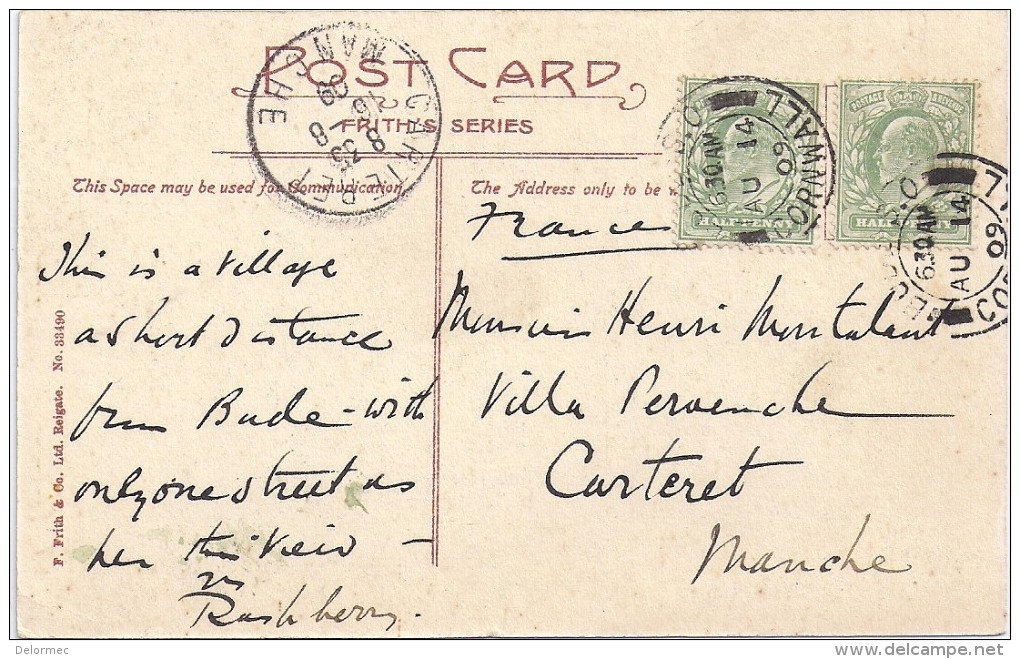 POST CARD
FRITH'S SERIES
CARTERET
MANCHE
8 33
16 8
09
This Space may be used for Communication
The Address only to be
HALF
POSTAGE & REVENUE
HALF PENNY
6.30AM
AU 14
09
CORNWALL
6.30AM
AU 14
09
This is a village
a short distance
from Bude - with
only one street as
per this view -
Rashberry.
France
Monsieur Henri Montalant
Villa Pervenche
Carteret
Manche
F. Frith & Co. Ltd. Reigate. No. 33490
Delormec